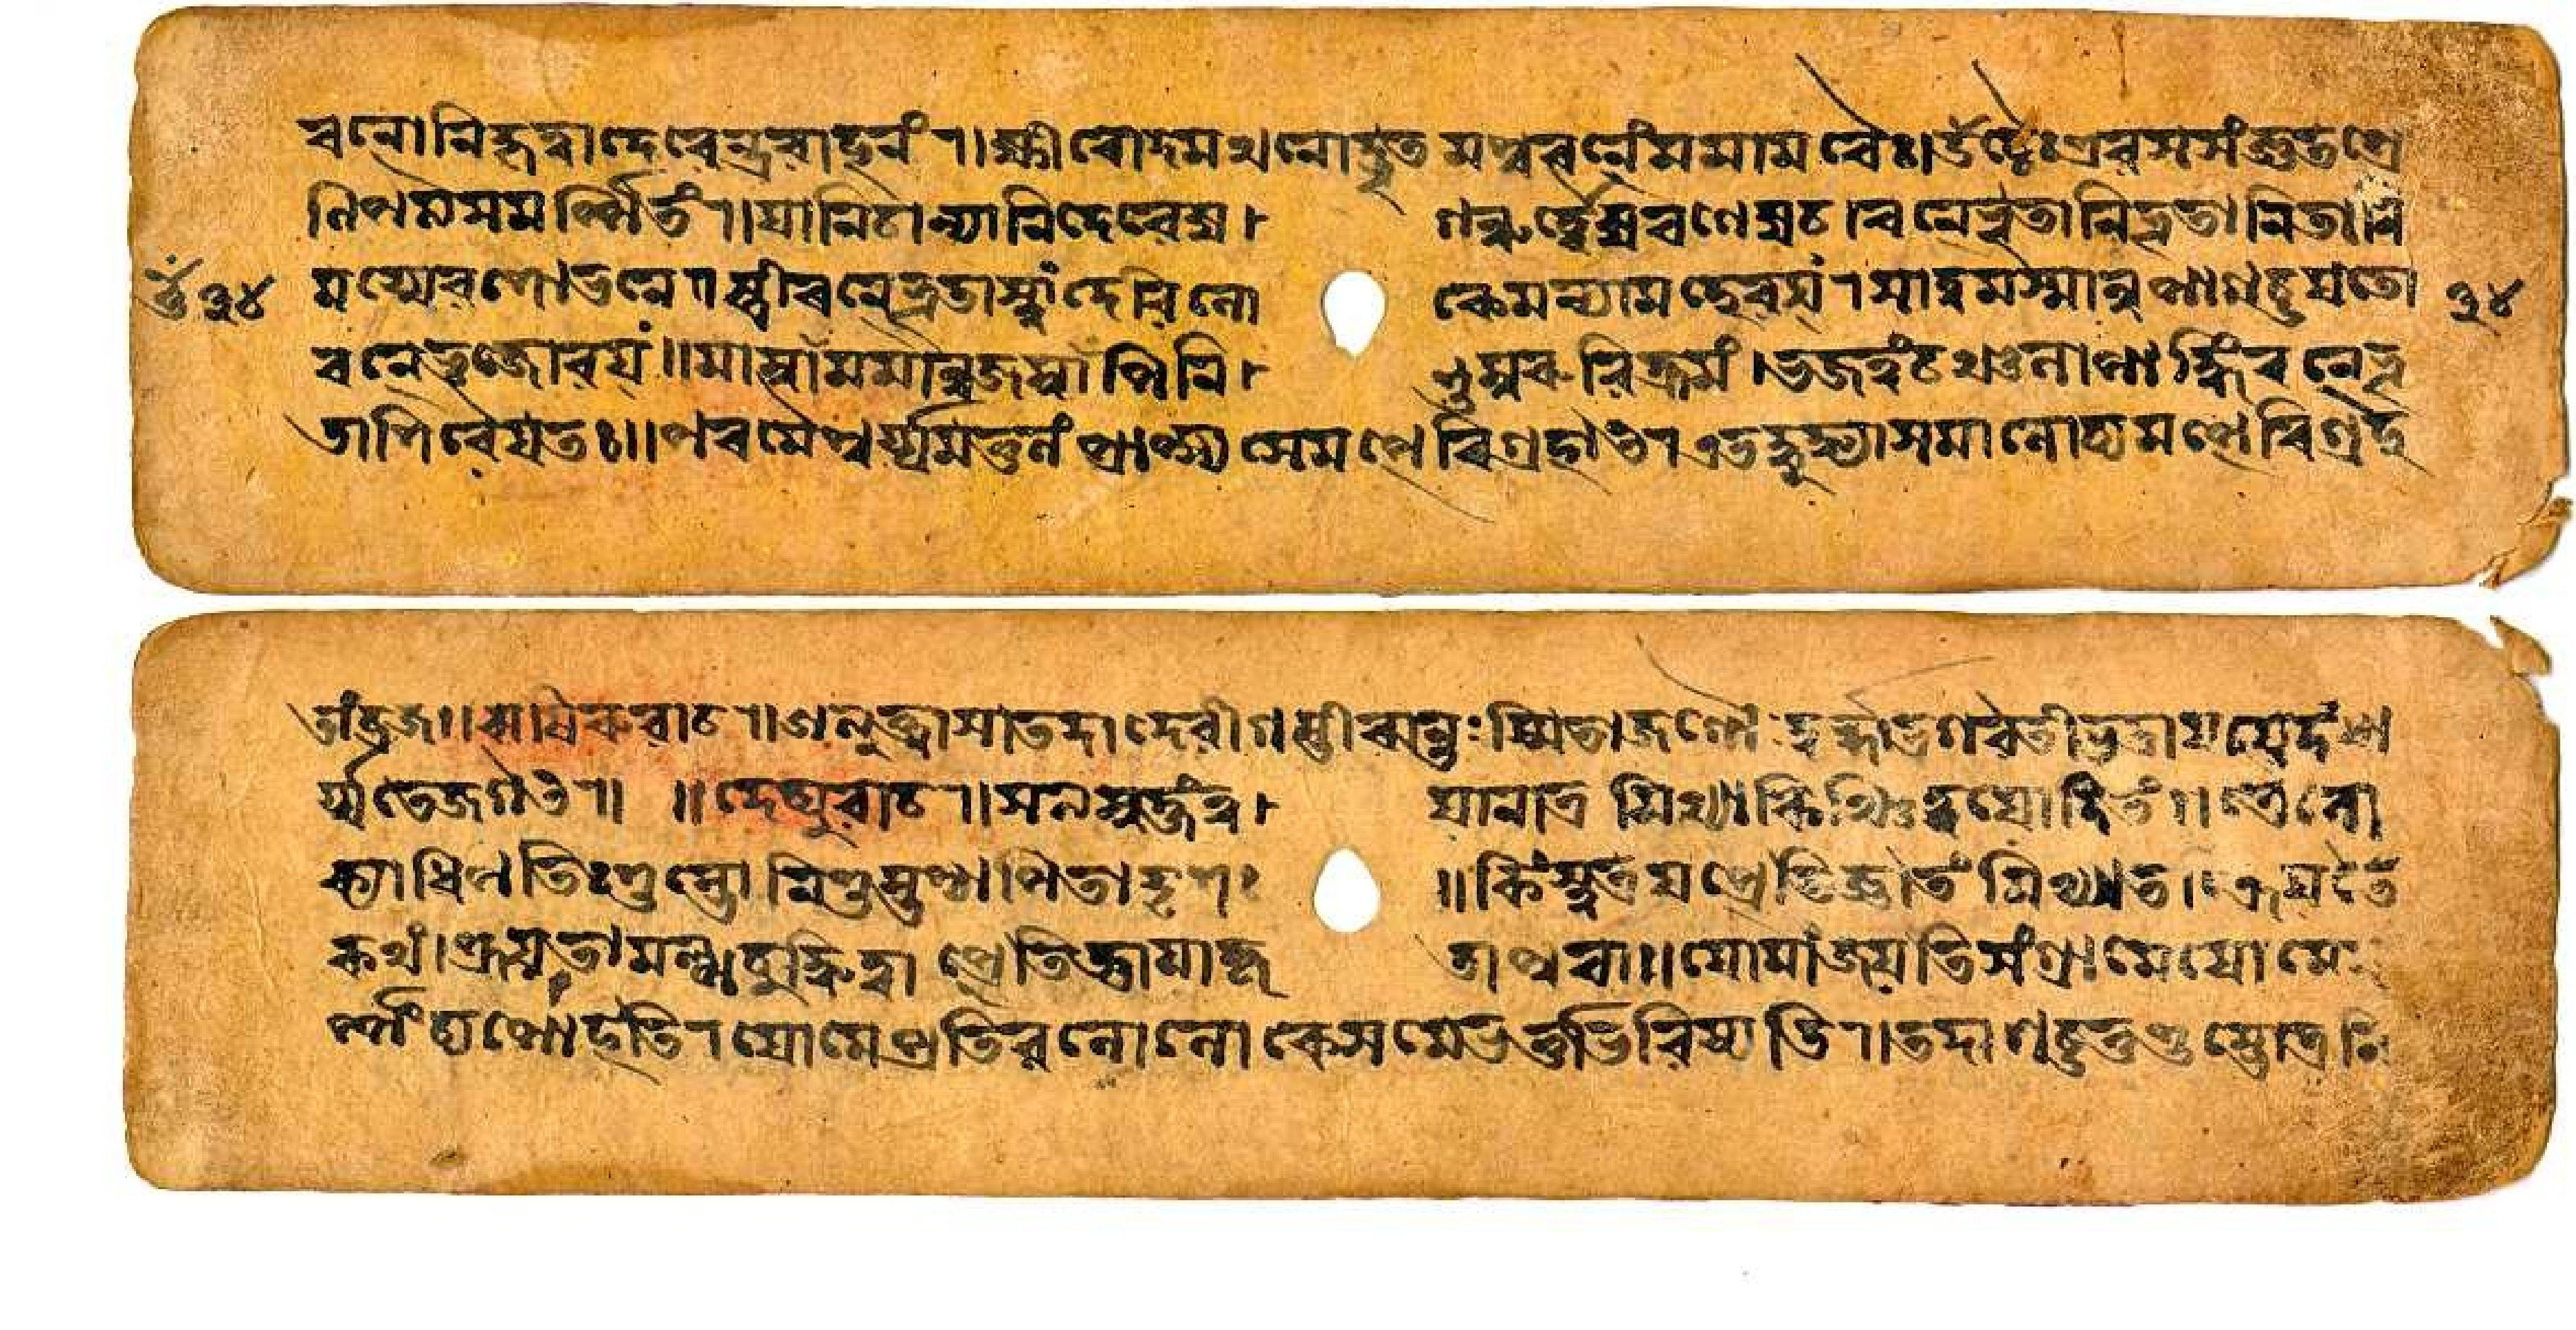 ৰত্নানি হৃত্বা দেবেন্দ্রবাহনং । ক্ষীৰোদমথনোদ্ভূতমশ্বৰত্নং মমামৰৈঃ । উচ্চৈঃশ্রবসসংজ্ঞন্তৎপ্র
ণিপত্য সমৰ্পিতং ॥ যানি চান্যানি দেবেষু গন্ধৰ্ব্বেষূৰগেষু চ । ৰত্নভূতানি ভূতানি তানি
ময্যেব শোভনে । স্ত্রীৰত্নভূতাং ত্বাং দেবি লোকে মন্যামহে বয়ং । সা ত্বমস্মানুপাগচ্ছ যতো
৩৪ ৩৪
ৰত্নভুজো বয়ং ॥ মাম্বা মমানুজম্বাপি নিশুম্ভমুৰুবিক্রমং । ভজ ত্বং চঞ্চলাপাঙ্গি ৰত্নভূ
তাসি বৈ যতঃ ॥ পৰমৈশ্বৰ্য্যমতুলং প্রাপ্স্যসে মৎপৰিগ্রহাৎ । এতদ্বুদ্ধ্যা সমালোচ্য মৎপৰিগ্রহ
তাং ব্রজ ॥ ঋষিৰুবাচ ॥ ইত্যুক্তা সা তদা দেবী গম্ভীৰান্তঃস্মিতা জগৌ । দুৰ্গা ভগবতী ভদ্রা যয়েদং ধা
ৰ্য্যতে জগৎ ॥ দেব্যুবাচ ॥ সত্যমুক্তং ত্বয়া নাত্র মিথ্যা কিঞ্চিত্ত্বয়োদিতং ॥ ত্রৈলো
ক্যাধিপতিঃ শুম্ভো নিশুম্ভশ্চাপি তাদৃশঃ ॥ কিং ত্বত্র যৎপ্রতিজ্ঞাতং মিথ্যা তৎক্রিয়তে
কথং । শ্রূয়তামল্পবুদ্ধিত্বাৎ প্রতিজ্ঞা যা কৃতা পুৰা ॥ যো মাং জয়তি সংগ্রামে যো মে দ
ৰ্পং ব্যপোহতি । যো মে প্রতিবলো লোকে স মে ভৰ্ত্তা ভবিষ্যতি ॥ তদাগচ্ছতু শুম্ভোত্র নি